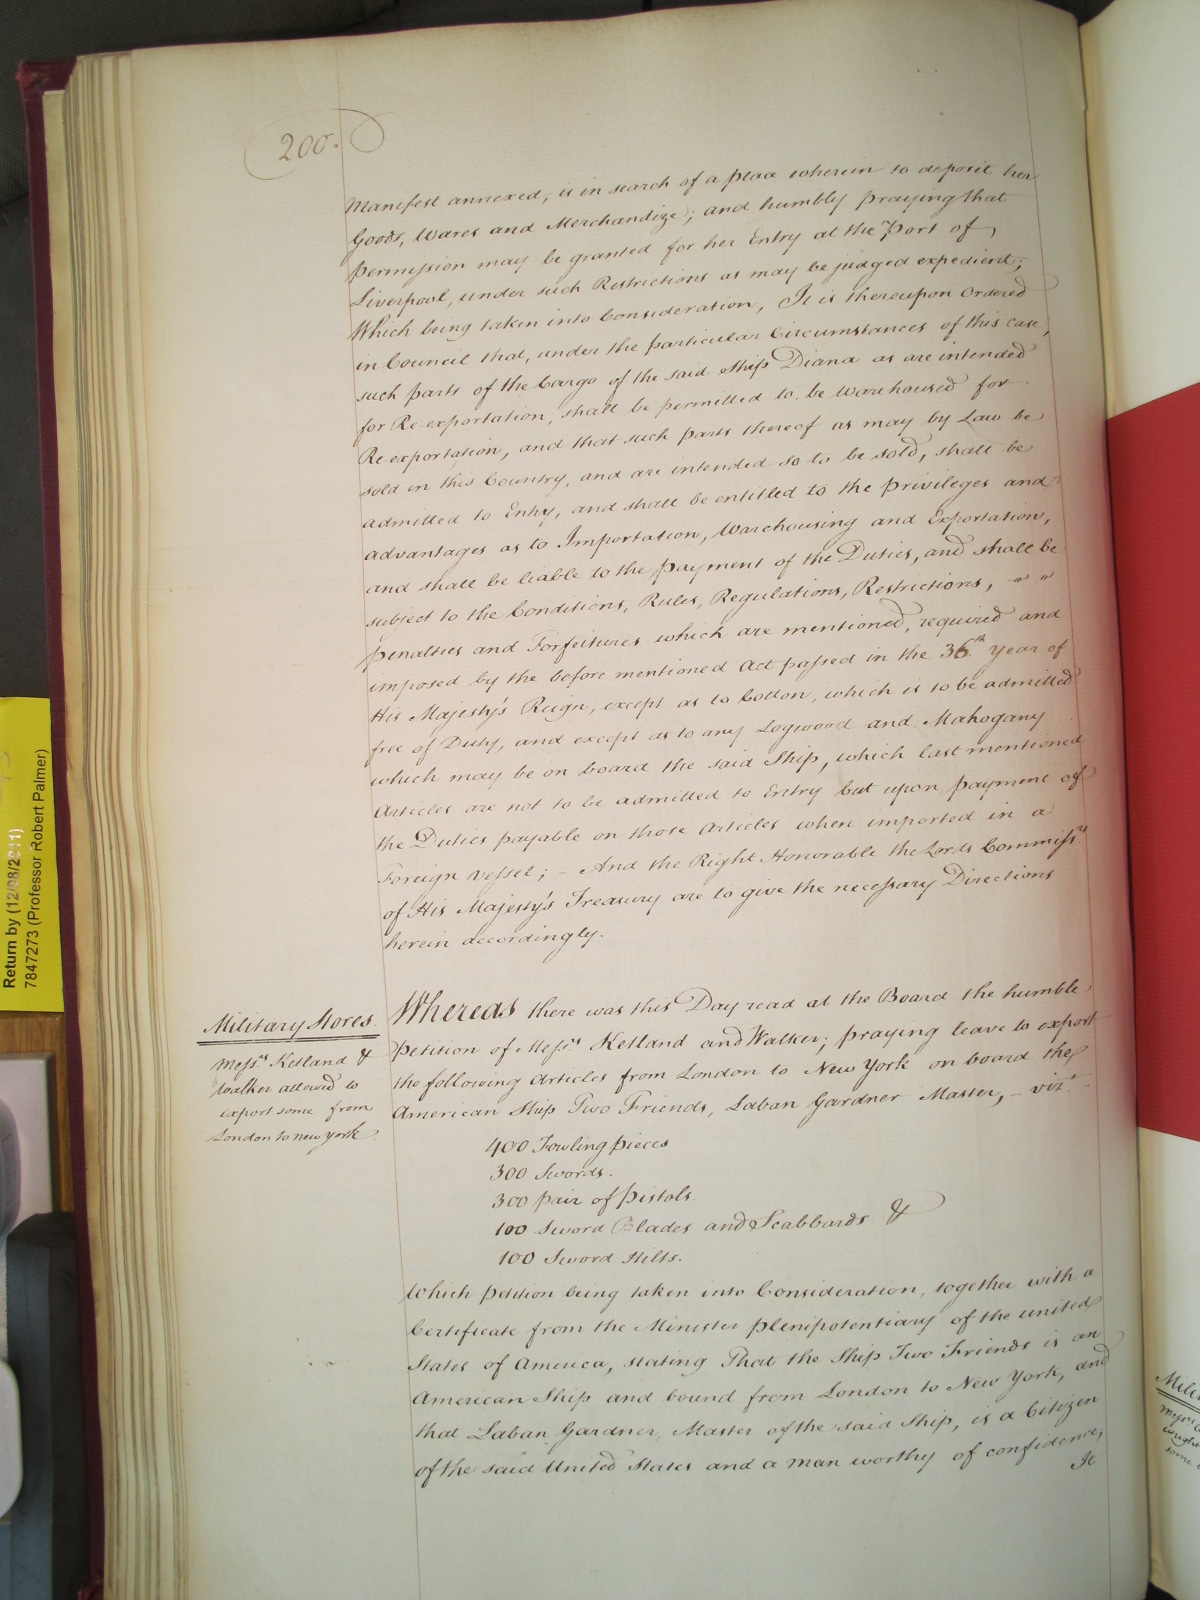 200.
Manifest annexed, is in search of a place wherein to deposit her
Goods, Wares and Merchandize; and humbly praying that
permission may be granted for her Entry at the Port of
Liverpool, under such Restrictions as may be judged expedient;
Which being taken into Consideration, It is thereupon Ordered
in Council that, under the particular Circumstances of this case,
such parts of the Cargo of the said Ship Diana as are intended
for Re-exportation, shall be permitted to be Warehoused for
Re-exportation, and that such parts thereof as may by Law be
sold in this Country, and are intended so to be sold, shall be
admitted to Entry, and shall be entitled to the privileges and
advantages as to Importation, Warehousing and Exportation,
and shall be liable to the payment of the Duties, and shall be
subject to the Conditions, Rules, Regulations, Restrictions, " "
penalties and Forfeitures which are mentioned, required and
imposed by the before mentioned Act passed in the 36th Year of
His Majesty's Reign, except as to Cotton, which is to be admitted
free of Duty, and except as to any Logwood and Mahogany
which may be on board the said Ship, which last mentioned
Articles are not to be admitted to Entry but upon payment of
the Duties payable on those Articles when imported in a
Foreign Vessel; - And the Right Honorable the Lords Commissrs
of His Majesty's Treasury are to give the necessary Directions
herein accordingly.
Military Stores.
Messrs Ketland &
Walker allowed to
export some from
London to New York
Whereas there was this Day read at the Board the humble
Petition of Messrs Ketland and Walker; praying leave to export
the following Articles from London to New York on board the
American Ship Two Friends, Laban Gardner Master, - vizt
400 Fowling pieces
300 Swords.
300 pair of Pistols
100 Sword Blades and Scabbards &
100 Sword Hilts.
Which petition being taken into Consideration, together with a
Certificate from the Minister plenipotentiary of the United
States of America, stating That the Ship Two Friends is an
American Ship and bound from London to New York, and
that Laban Gardner, Master of the said Ship, is a Citizen
of the said United States and a man worthy of confidence,
It
Return by (12/08/2011)
7847273 (Professor Robert Palmer)